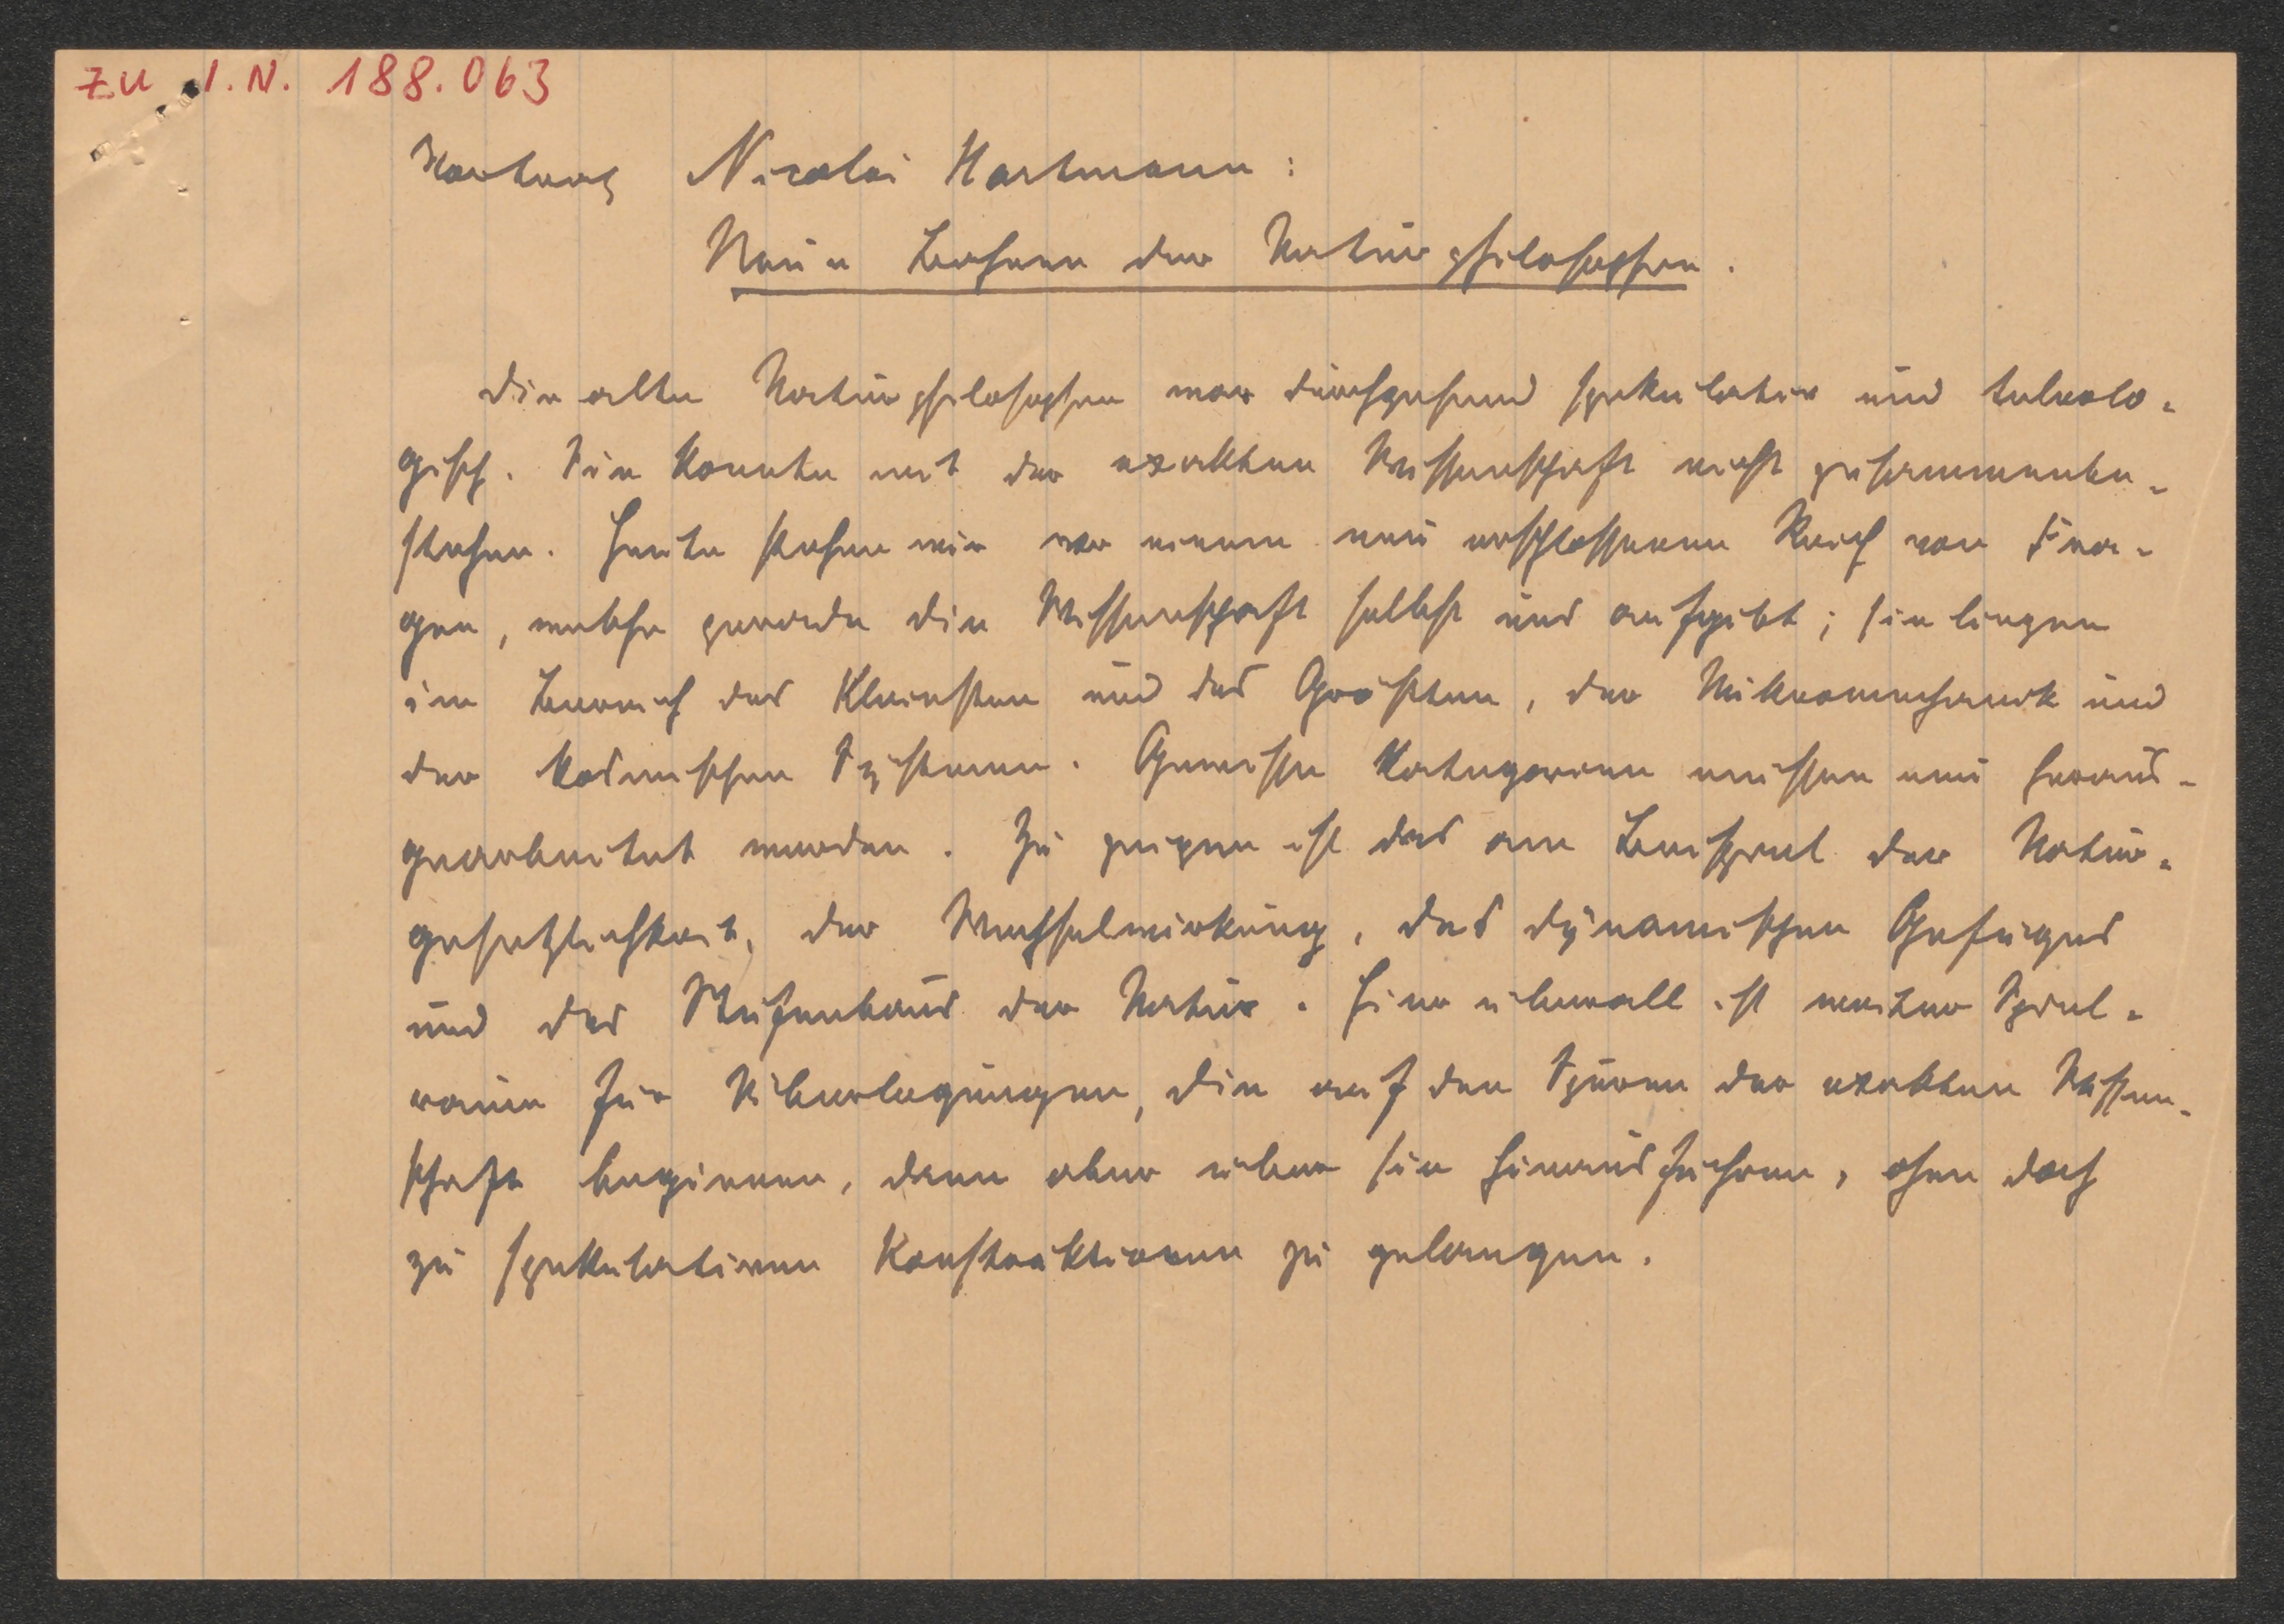 zu I.N. 188.063
Vortrag Nicolai Hartmann:
Neue Bahnen der Naturphilosophie.
Die alte Naturphilosophie war durchgehend spekulativ und teleolo-
gisch. Sie konnte mit der exakten Wissenschaft nicht zusammenbe-
stehen. Heute stehen wir vor einem neu erschlossenen Reich von Fra-
gen, welche gerade die Wissenschaft selbst uns aufgibt; sie liegen
im Bereich des Kleinsten und des Größten, der Mikromechanik und
der kosmischen Systeme. Gewisse Kategorien müssen neu heraus-
gearbeitet werden. Zu zeigen ist das am Beispiel der Natur-
gesetzlichkeit, der Wechselwirkung, des dynamischen Gefüges
und des Stufenbaus der Natur. Hier überall ist weiter Spiel-
raum für Überlegungen, die auf den Spuren der exakten Wissen-
schaft beginnen, dann aber über sie hinausführen, ohne doch
zu spekulativen Konstruktionen zu gelangen.